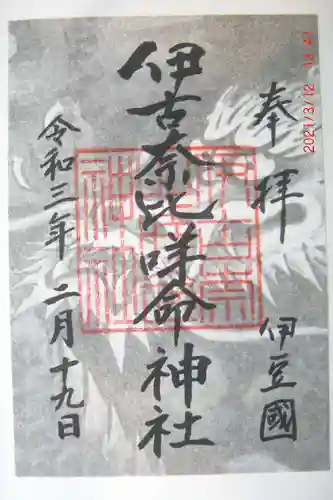 奉拝
伊豆國
伊古奈比咩命神社
令和三年二月十九日
2021/3/12 13:47